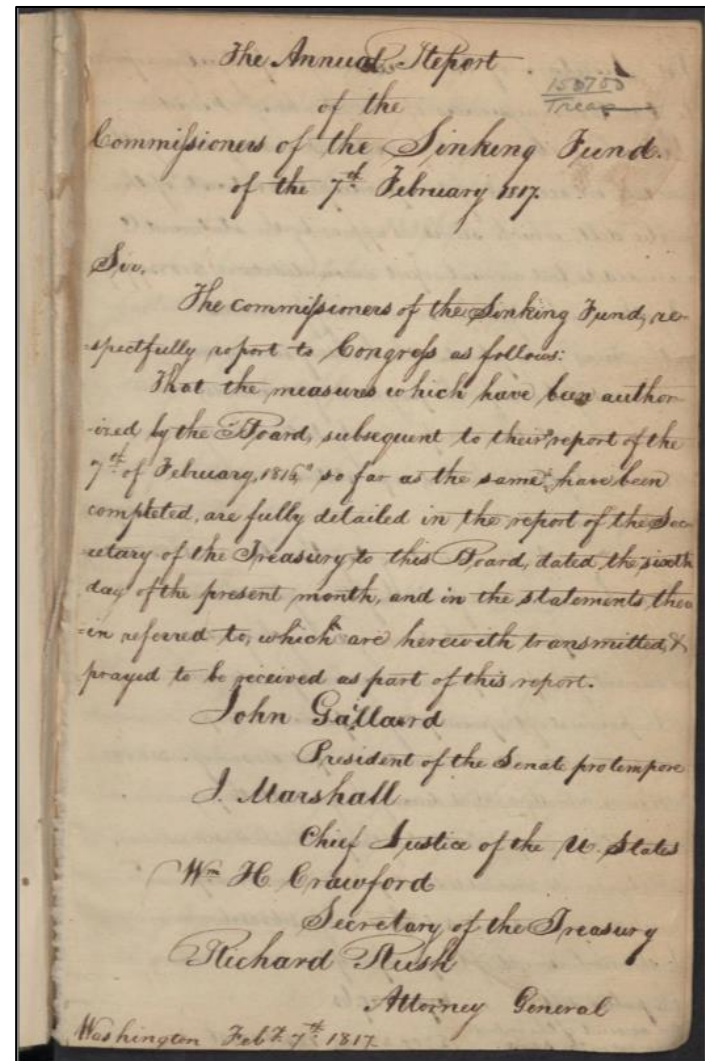 The Annual Report
150700
Treas
of the
Commissioners of the Sinking Fund.
of the 7th February 1817.
Sir,
The commissioners of the Sinking Fund, re-
-spectfully report to Congress as follows:
That the measures which have been author-
-ized by the Board, subsequent to their report of the
7th of February, 1816, so far as the same have been
completed, are fully detailed in the report of the Sec-
-retary of the Treasury to this Board, dated the sixth
day of the present month, and in the statements there
-in referred to, which are herewith transmitted, &
prayed to be received as part of this report.
John Gaillard
President of the Senate protempore
J. Marshall
Chief Justice of the U. States
Wm H Crawford
Secretary of the Treasury
Richard Rush
Attorney General
Washington Feby. 7th 1817